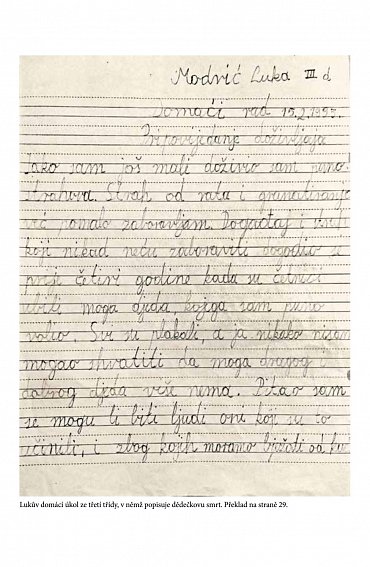 Modrić Luka III d
Domaći rad 19.2.1995.
Pripovijedanje doživljaja
Iako sam još mali doživio sam puno
strahova. Strah od rata i granatiranja
već pomalo zaboravljam. Događaj i strah
koji nikad neću zaboraviti dogodio se
prije četiri godine kada su četnici
ubili moga djeda kojega sam puno
volio. Svi su plakali, a ja nikako nisam
mogao shvatiti da moga dragog i
dobrog djeda više nema. Pitao sam
se mogu li biti ljudi oni koji su to
učinili, i zbog kojih moramo bježati od
Lukův domácí úkol ze třetí třídy, v němž popisuje dědečkovu smrt. Překlad na straně 29.